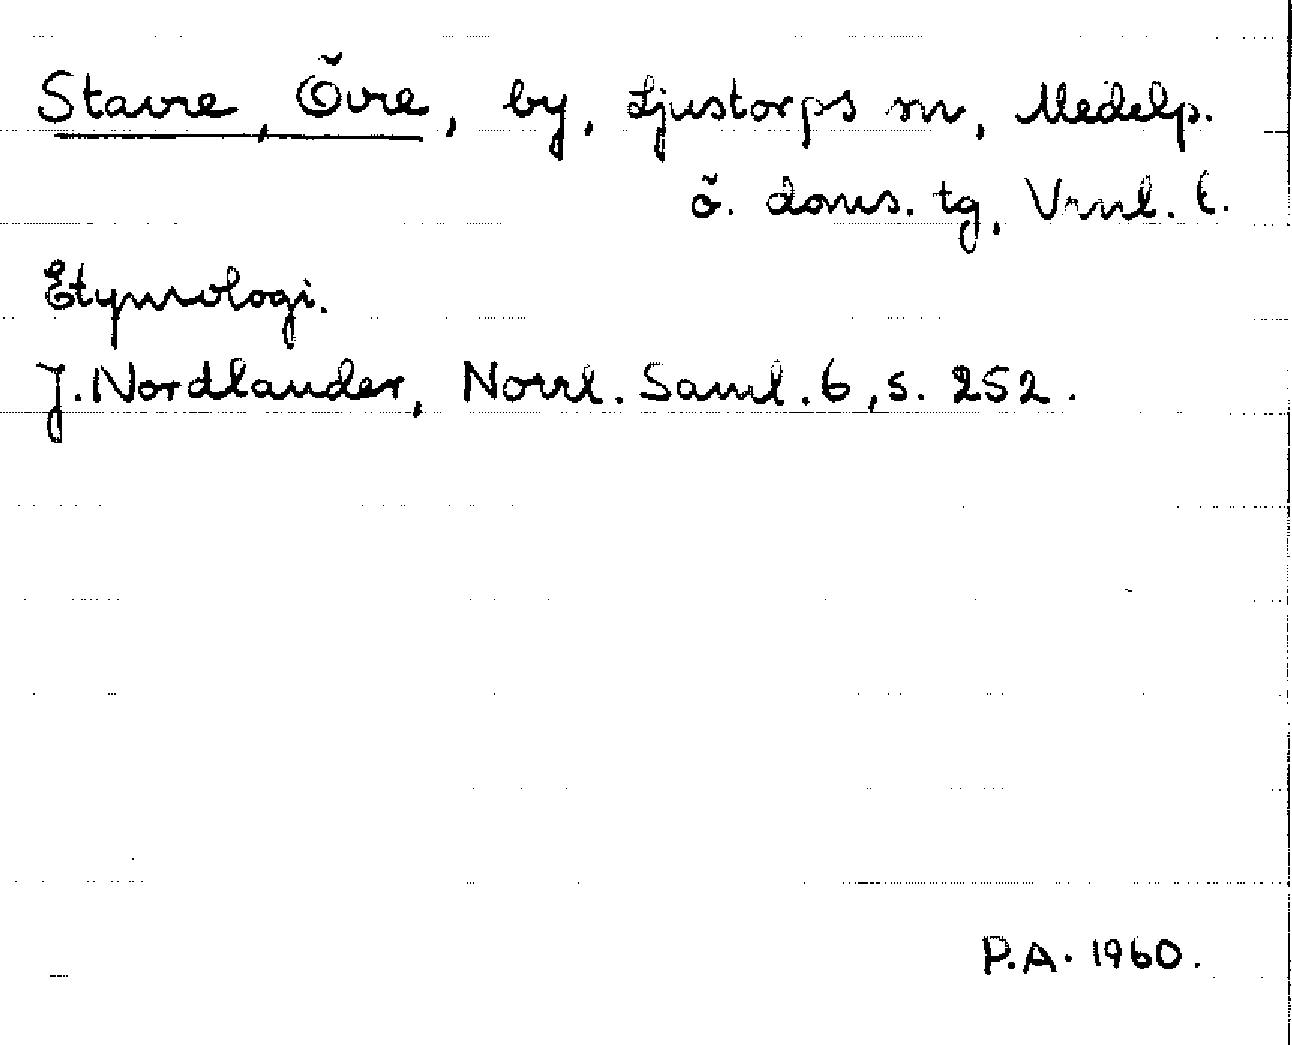 Stavre, Övre, by, Ljustorps sn, Medelp.
ö. doms. tg, Vrnl. l.
Etymologi.
J. Nordlander, Norrl. Saml. 6, s. 252.
P.A. 1960.